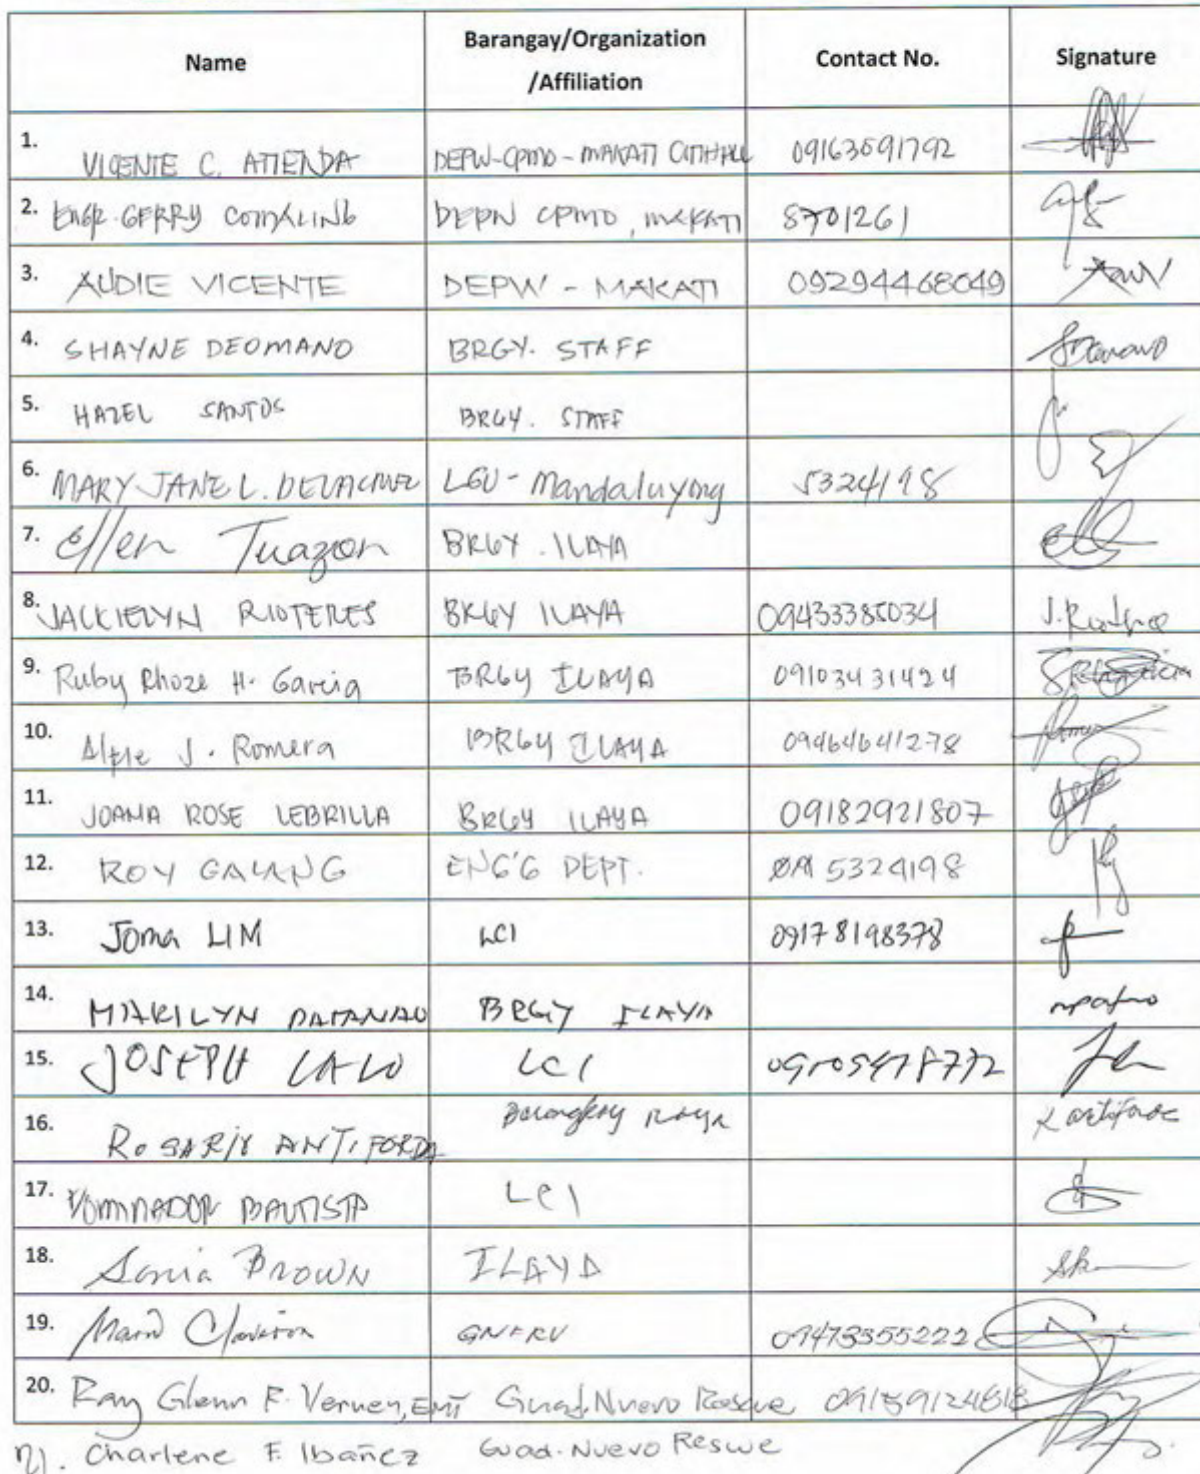 Name Barangay/Organization /Affiliation Contact No. Signature
1. VICENTE C. ATIENDA DEPW-CPMO-MAKATI CITYHALL 09163591792
2. ENGR. GERRY COMALING DEPW CPMO, MAKATI 8701261
3. AUDIE VICENTE DEPW - MAKATI 09294468049
4. SHAYNE DEOMANO BRGY. STAFF
5. HAZEL SANTOS BRGY. STAFF
6. MARY JANE L. DELACRUZ LGU - Mandaluyong 5324198
7. Ellen Tuazon BRGY. ILAYA
8. JACKIELYN RIOTERES BRGY ILAYA 09433385034
9. Ruby Rhoze H. Garcia BRGY ILAYA 09103431424
10. J. Romera BRGY ILAYA 09464641278
11. JOANA ROSE LEBRILLA BRGY ILAYA 09182921807
12. ROY GALANG ENG'G DEPT. 5324198
13. Joma LIM LCI 09178198378
14. MARILYN BRGY ILAYA
15. JOSEPH LALO LCI
16. ROSARIO ANTIFORDA Barangay Ilaya
17. DOMINADOR BAUTISTA LCI
18. Sonia BROWN ILAYA
19. GNFRV 09473555222
20. Ray Glenn F. Verney, EMT Guad. Nuevo Rescue 09159124818
21. Charlene F. Ibañez Guad. Nuevo Rescue